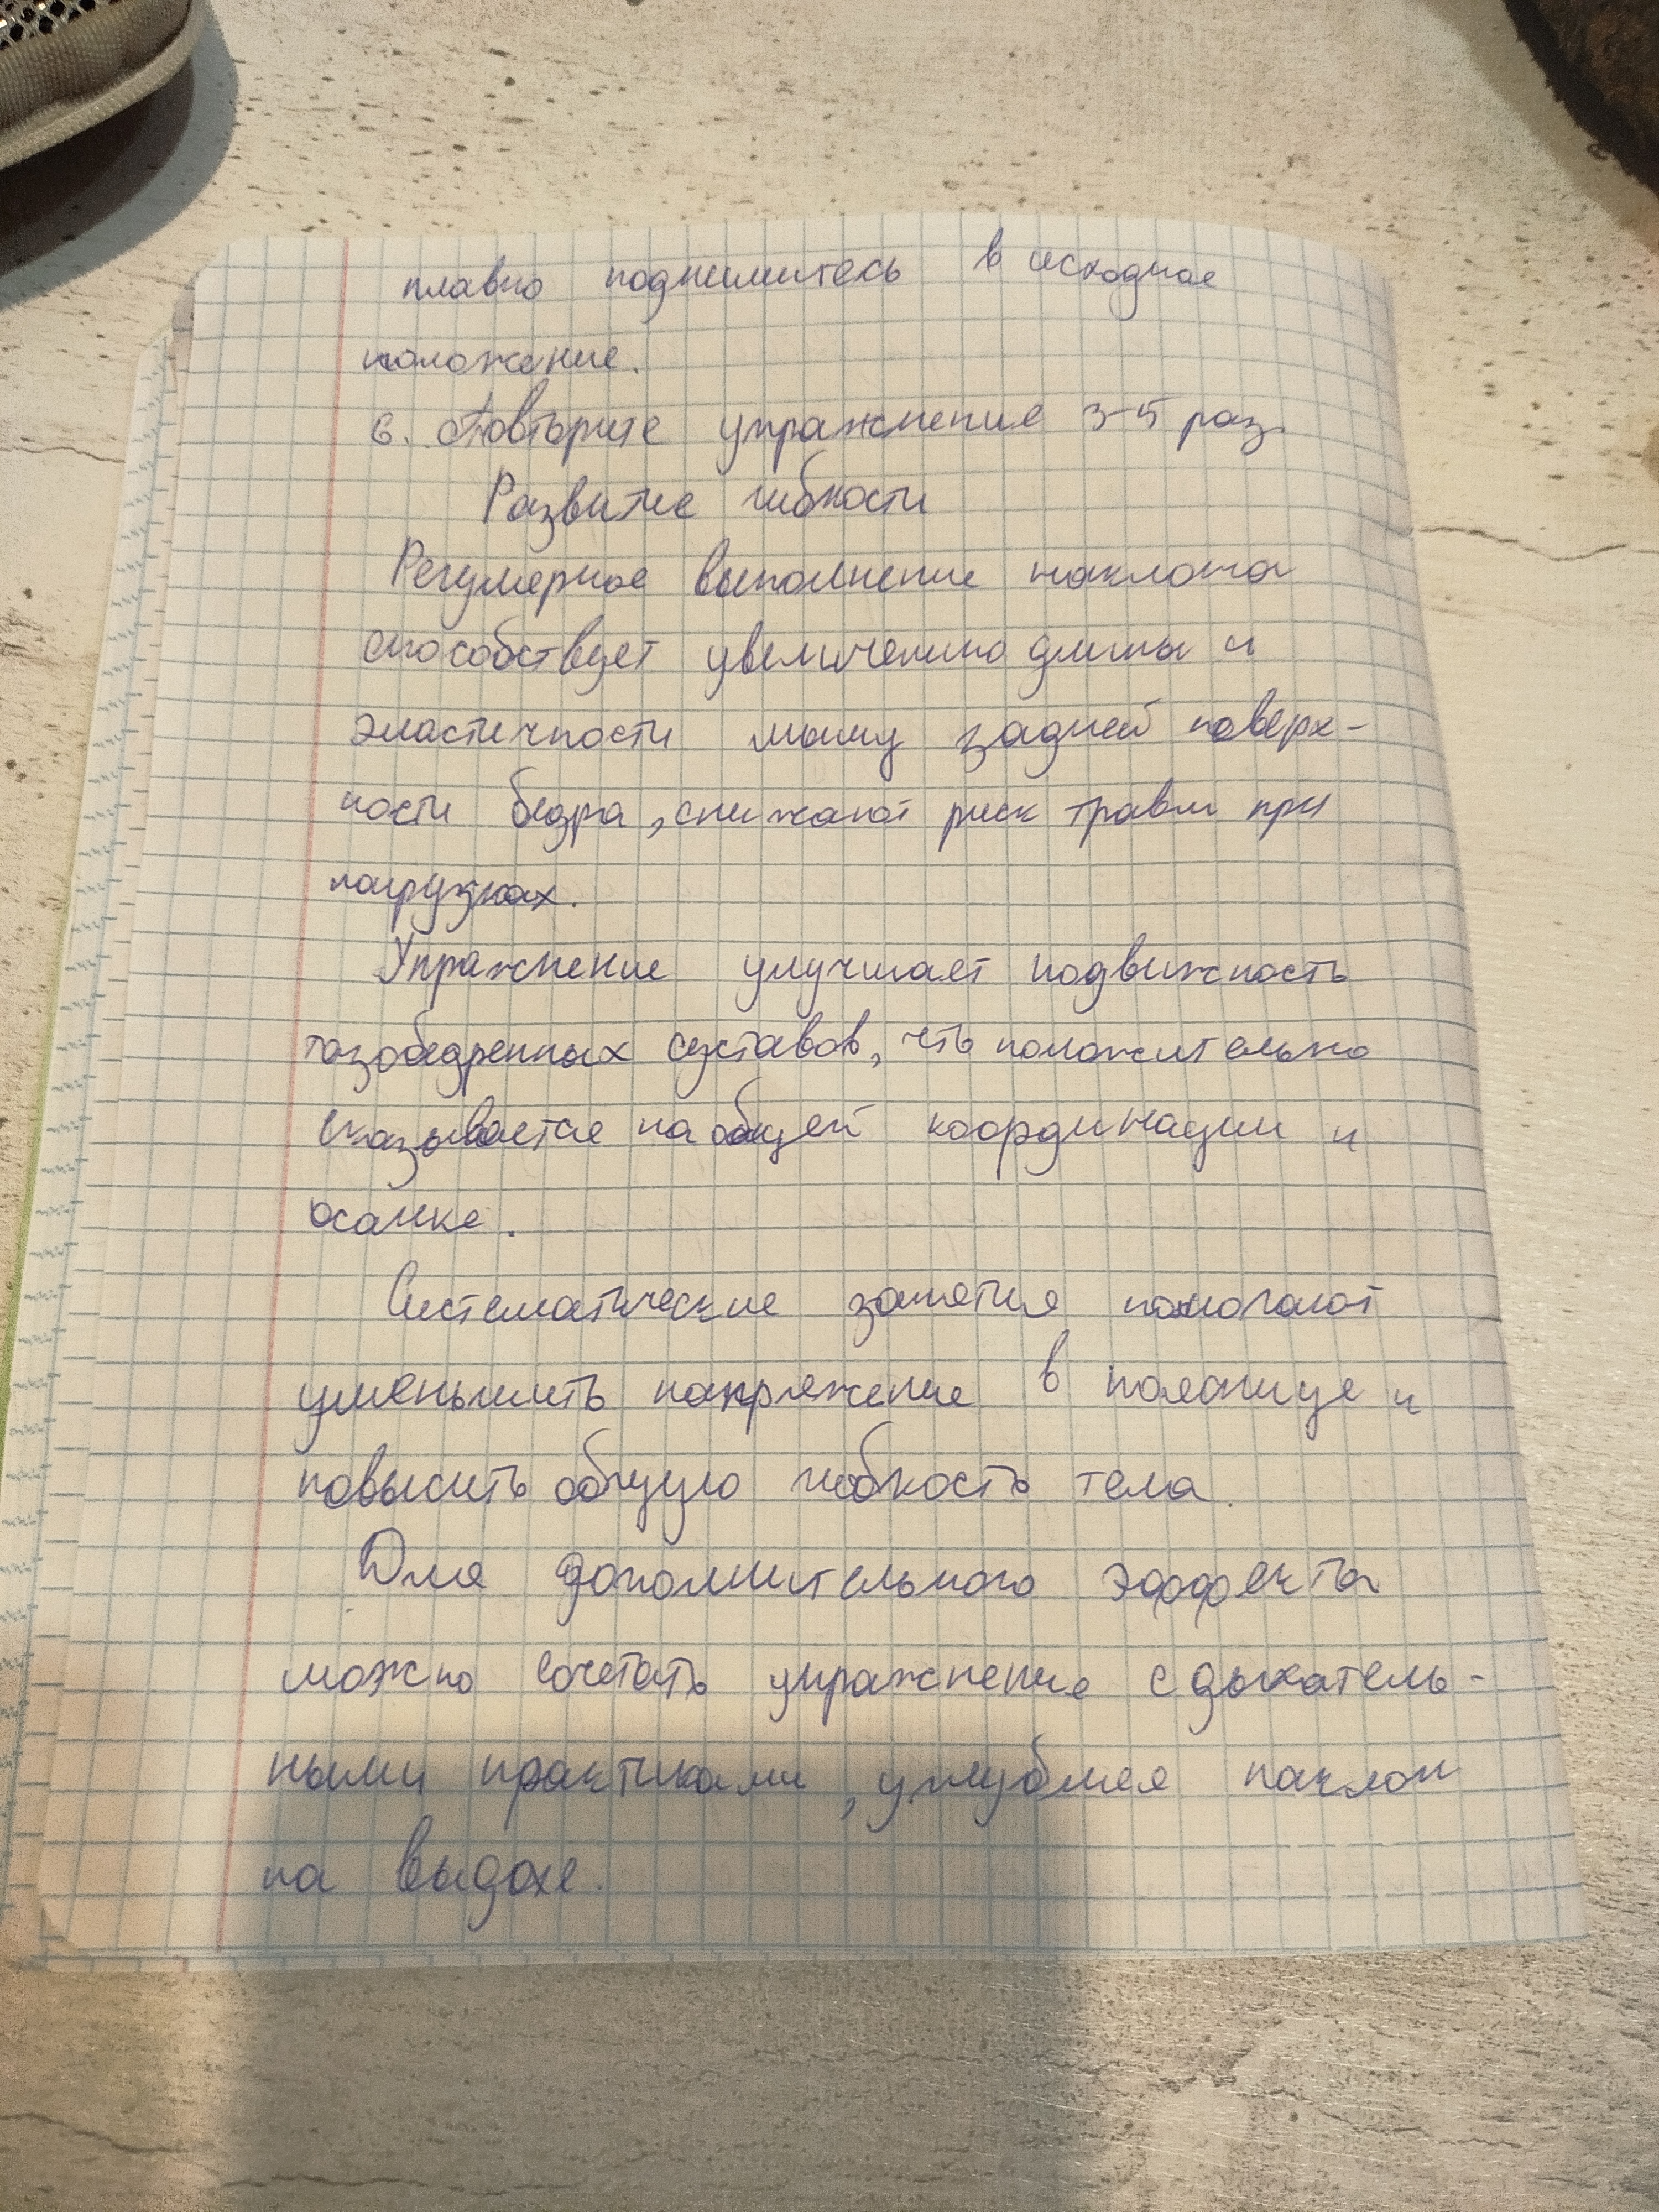 плавно поднимитесь в исходное
положение.
6. Повторите упражнение 3-5 раз.
Развитие гибкости
Регулярное выполнение наклона
способствует увеличению длины и
эластичности мышц задней поверх-
ности бедра, снижают риск травм при
нагрузках.
Упражнение улучшает подвижность
тазобедренных суставов, что положительно
сказывается на общей координации и
осанке.
Систематические занятия помогают
уменьшить напряжение в пояснице и
повысить общую гибкость тела.
Для дополнительного эффекта
можно сочетать упражнение с дыхатель-
ными практиками, углубляя наклон
на выдохе.